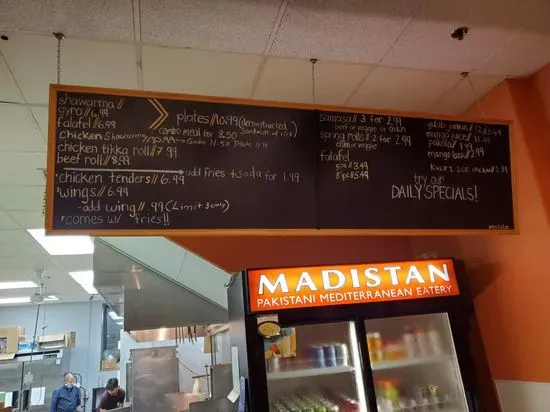 shawarma //
gyro // 6.99
falafel // 6.99
plates // 10.99 (deconstructed sandwich w/ rice)
combo meal for 8.50
chicken shawarma // 10.99 → Combo 11.50 Plate 11.99
chicken tikka roll // 7.99
beef roll // 8.99
*chicken tenders // 6.99 → add fries + soda for 1.99
*wings // 6.99
-add wing // .99 (Limit 3 only)
*comes w/ fries!!
samosa // 3 for 2.99
beef or veggie or chikn
spring rolls // 2 for 2.99
chikn or veggie
falafel
5pc // 3.49
8pc // 5.49
gulab jamun //
mango juice //
pakola //
mango lassi // 2.99
Kulfi ICE CREAM //
try our
DAILY SPECIALS!
MADISTAN
PAKISTANI MEDITERRANEAN EATERY